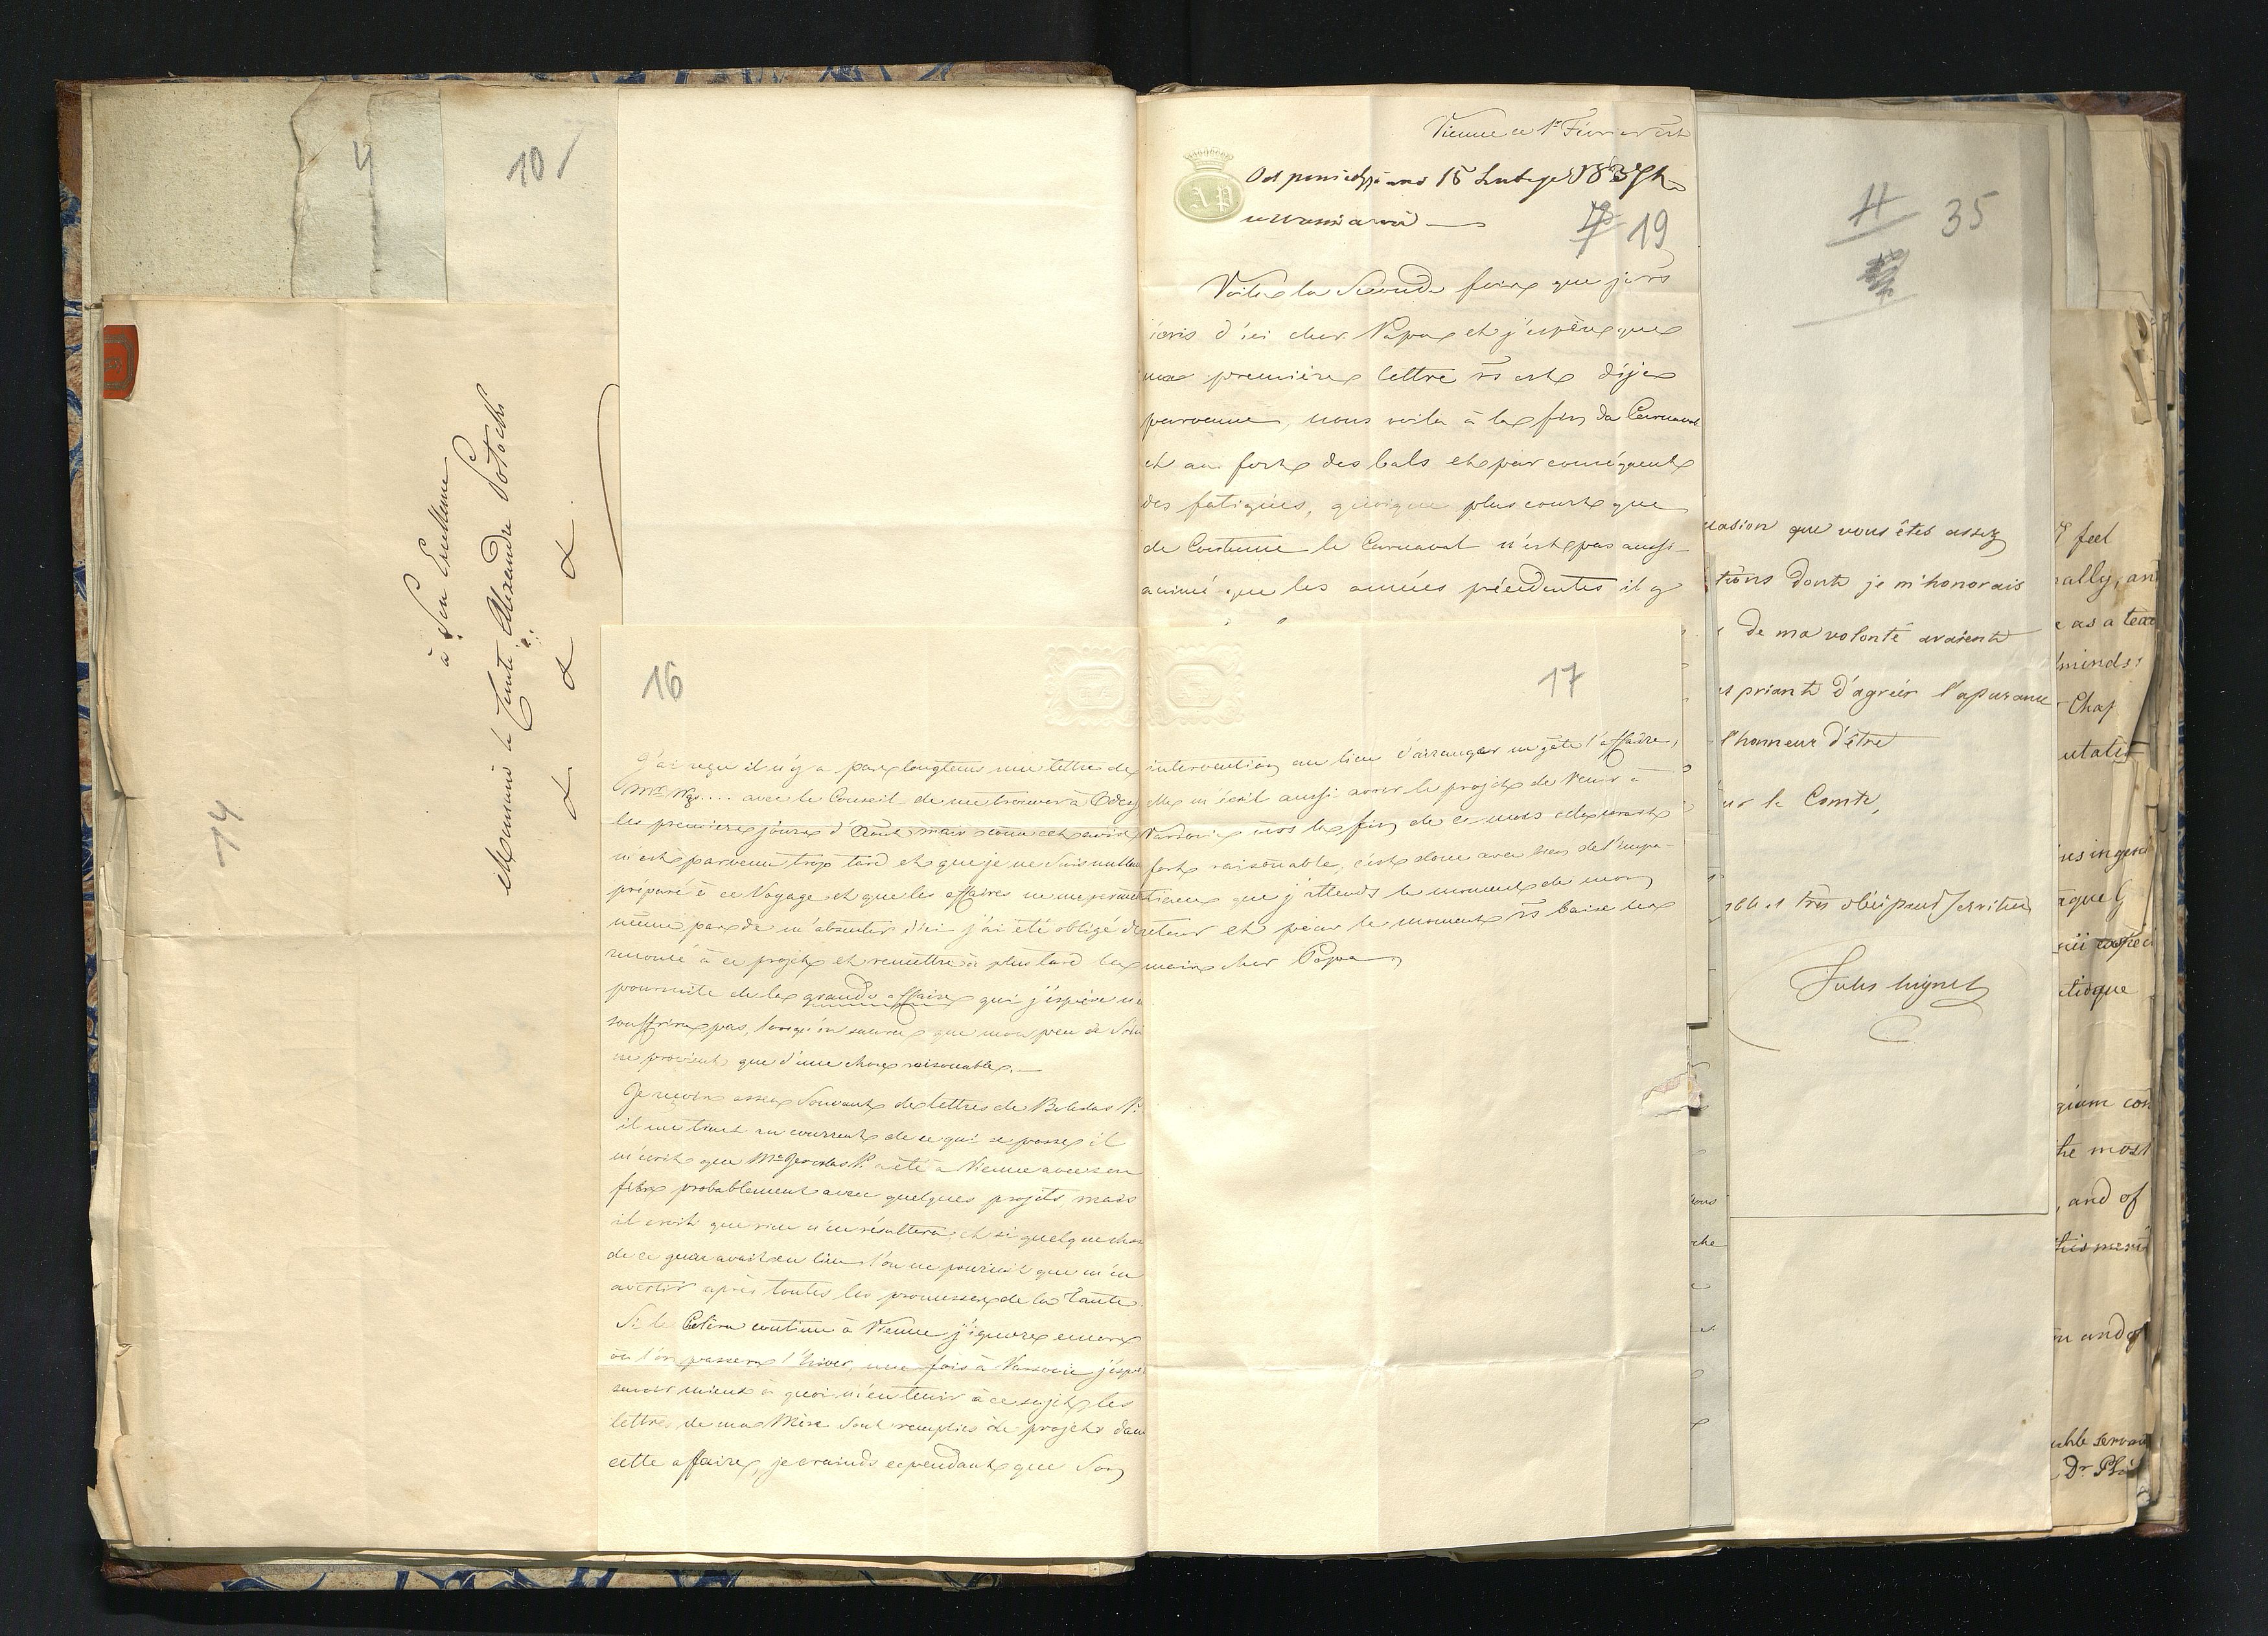 4
10
14
à Son Excellence
Monsieur le Comte Alexandre Potocki
à
&. &. &.
Vienne ce 1r
Odpowiedziano 15 Lutego
AP
19
Voila la Seconde fois que je vs
écris d'ici cher Papa et j'espère que
ma première lettre vs est déja
parvenue, nous voila à la fin du Carnaval
et au fort des bals et par conséquent
des fatigues, quoique plus court que
de Coutume le Carnaval n'est pas aussi
animé que les années précédentes il y
16
J'ai reçu il n'y a pas longtems une lettre de
Mr avec le Conseil de me trouver à Odess
les premiers jours d'Août, mais comme cet avis
m'est parvenu trop tard et que je ne suis nullem
préparé à ce Voyage et que les affaires ne me permet
même pas de m'absenter d'ici j'ai été obligé de
renoncé à ce projet et remettre à plus tard la
poursuite de la grande affaire qui j'éspère ne
souffrira pas, lorsqu'on saura que mon peu de Soin
ne provient que d'une chose raisonable. —
Je reçois assez Souvent des lettres de Boleslas P.
il me tient au courrent de ce qui se passe il
m'écrit que Me Jaroslas P. a été à Vienne avec son
fils probablement avec quelques projets, mais
il croit que rien n'en résultera, et si quelque chose
de ce genre avait eu lieu l'on ne pourrait que m'en
avertir après toutes les promesses de la Tante.
Si le Coléra continu à Vienne j'ignore encore
où l'on passera l'hiver, une fois à Varsovie j'éspè
savoir mieux à quoi m'en tenir à ce sujet, les
lettres de ma Mère sont remplies de projets dans
cette affaire, je crainds cependant que Son
17
intervention au lieu d'arranger ne gâte l'affaire,
elle m'écrit aussi avoir le projet de Venir à
Varsovie vers la fin de ce mois cela serait
fort raisonable, c'est donc avec bien de l'impa-
tience que j'attends le moment de mon
retour et pour le moment vs baise les
mains cher Papa
35
casion que vous êtes assez
tions dont je m'honorais
de ma volonté avaient
priant d'agréer l'assurance
l'honneur d'être
ur le Comte,
ble et très obéissant serviteur
Jules Mignet
feel
nally, and
as a teac
minds:
Chap
utatio
tique
gium con
the most
, and of
this
n and of
able servan
Dr Phil